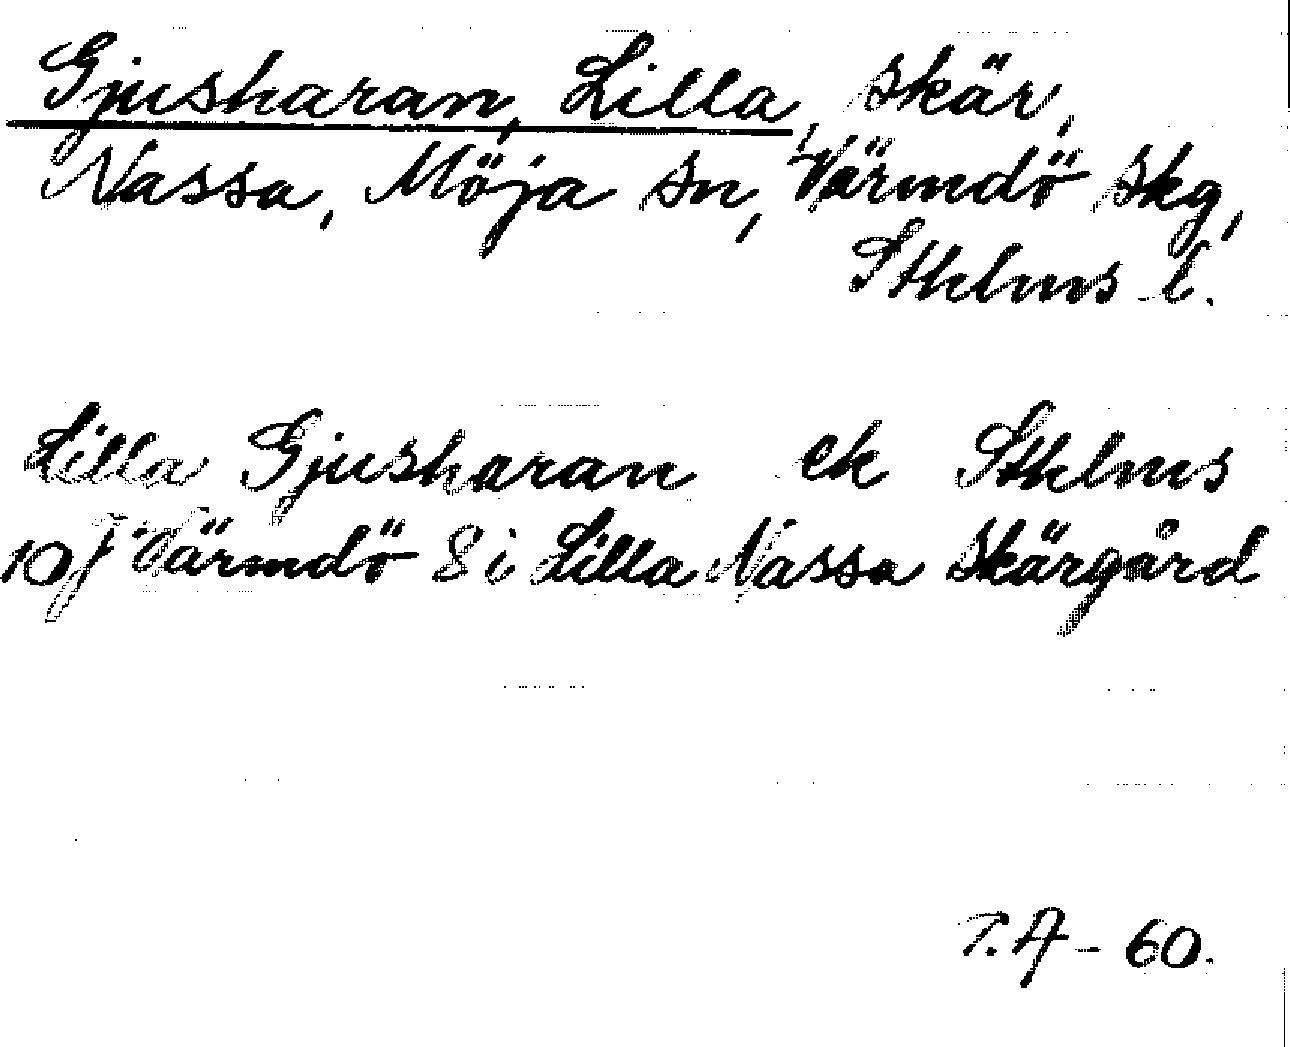 Gjusharan, Lilla, skär,
Nassa, Möja sn, Värmdö skg,
Sthlms l.
Lilla Gjusharan ek Sthlms
10f Värmdö 8 i Lilla Nassa skärgård
T.A - 60.